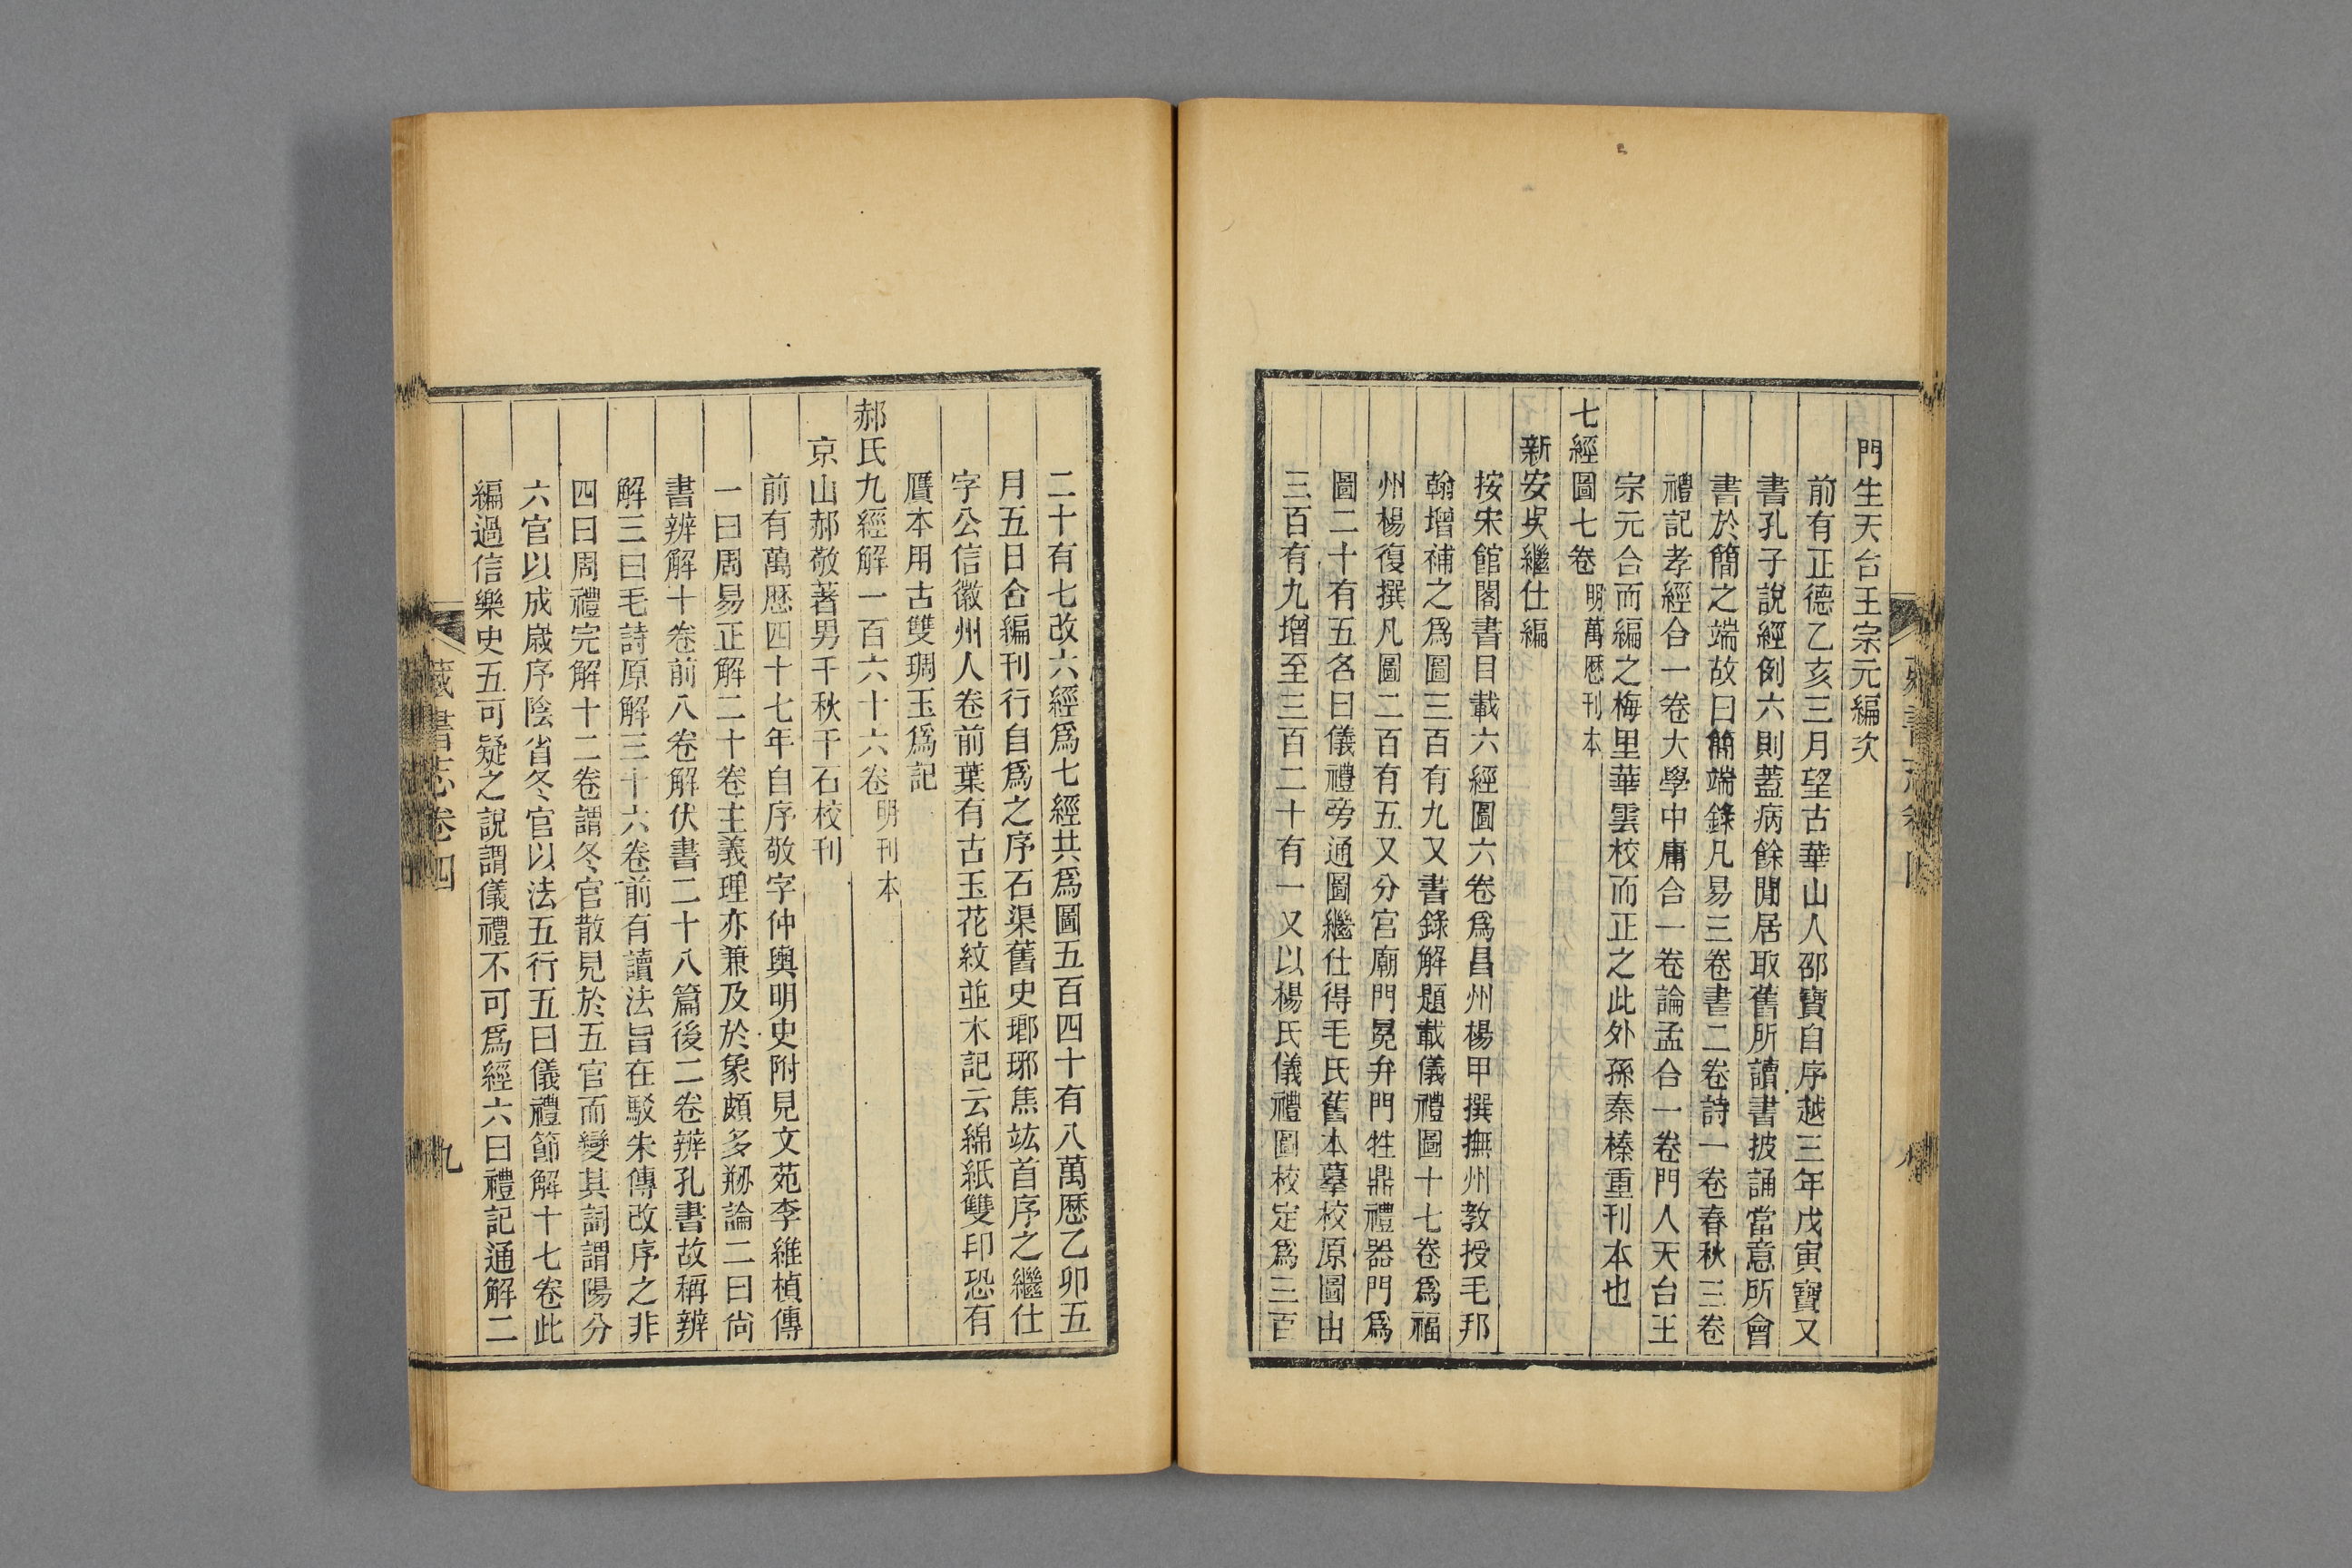 門生天台王宗元編次
前有正德乙亥三月望古華山人邵寶自序越三年戊寅寶又
書孔子說經例六則蓋病餘閒居取舊所讀書披誦當意所會
書於簡之端故曰簡端錄凡易三卷書二卷詩一卷春秋三卷
禮記孝經合一卷大學中庸合一卷論孟合一卷門人天台王
宗元合而編之梅里華雲校而正之此外孫秦榛重刊本也
七經圖七卷 明萬厯刊本
新安吳繼仕編
按宋館閣書目載六經圖六卷爲昌州楊甲撰撫州教授毛邦
翰增補之爲圖三百有九又書錄解題載儀禮圖十七卷爲福
州楊復撰凡圖二百有五又分宮廟門冕弁門牲鼎禮器門爲
圖二十有五名曰儀禮旁通圖繼仕得毛氏舊本摹校原圖由
三百有九增至三百二十有一又以楊氏儀禮圖校定爲三百
二十有七改六經爲七經共爲圖五百四十有八萬厯乙卯五
月五日合編刊行自爲之序石渠舊史瑯琊焦竑首序之繼仕
字公信徽州人卷前葉有古玉花紋並木記云綿紙雙印恐有
贋本用古雙琱玉爲記
郝氏九經解一百六十六卷 明刊本
京山郝敬著男千秋千石校刊
前有萬厯四十七年自序敬字仲輿明史附見文苑李維楨傳
一曰周易正解二十卷主義理亦兼及於象頗多剏論二曰尙
書辨解十卷前八卷解伏書二十八篇後二卷辨孔書故稱辨
解三曰毛詩原解三十六卷前有讀法旨在駁朱傳改序之非
四曰周禮完解十二卷謂冬官散見於五官而變其詞謂陽分
六官以成嵗序陰省冬官以法五行五曰儀禮節解十七卷此
編過信樂史五可疑之說謂儀禮不可爲經六曰禮記通解二
藏書志卷四
九